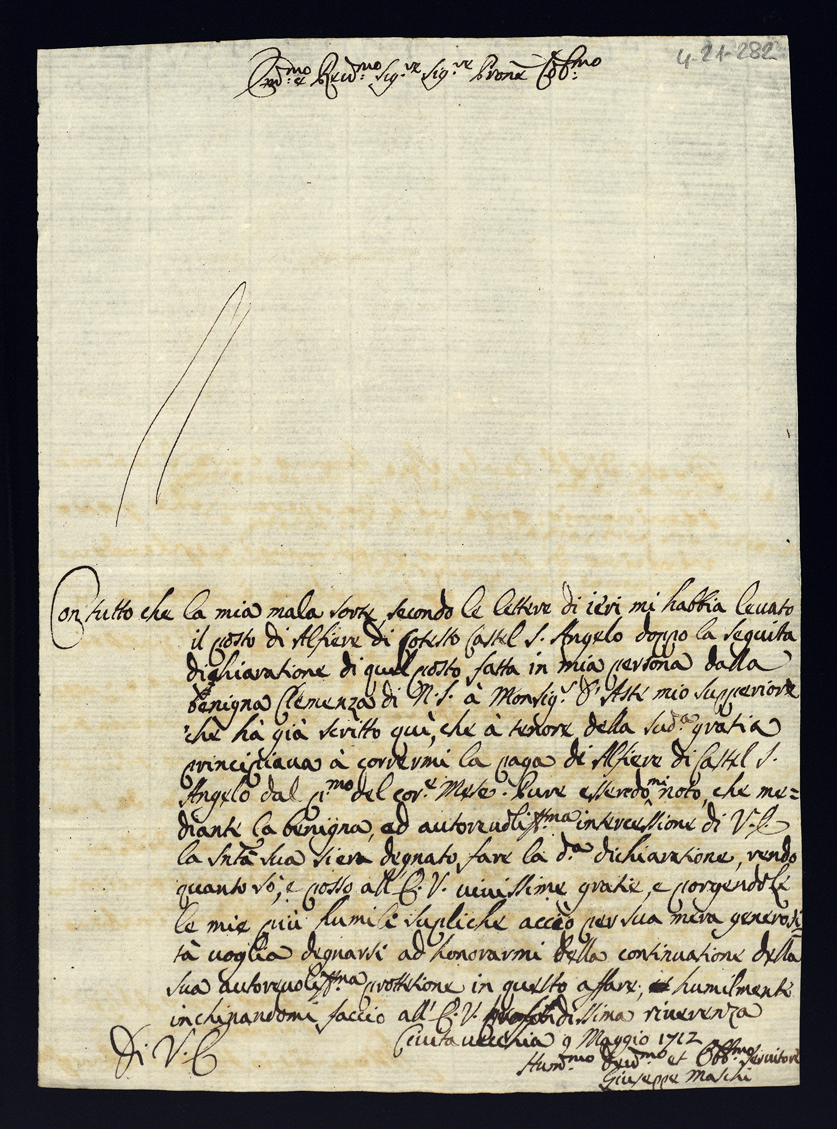 4-21-282
Em.mo e Reu.mo Sig.re Sig.re Prone Col.mo
Con tutto che la mia mala sorte, secondo le lettere di ieri mi habbia leuato
il posto di Alfiere di cotesto Castel S. Angelo doppo la seguita
dichiaratione di quel posto fatta in mia persona dalla
benigna Clemenza di N. S. à Monsig.r d'Aste mio supperiore
che hà già scritto quì, che à tenore della sud.a gratia
principiaua à corrermi la paga di Alfiere di Castel S.
Angelo dal p.mo del cor.e Mese. Pure essendomi noto, che me=
diante la benigna, ed autoreuoliss.ma intercessione di V. E.
la Sntà sua si era degnato fare la d.a dichiaratione, rendo
quanto sò, e posso all'E. V. uiuissime gratie, e porgendole
le mie più humili supliche acciò per sua mera generosi
tà uoglia degnarsi ad honorarmi della continuatione della
sua autoreuoliss.ma protetione in questo affare; humilmente
inchinandomi faccio all'E. V. profondissima riuerenza
Ciuita uecchia 9 Maggio 1712
Di V. E.
Hum.mo Deu.mo et Obb.mo Seruitore
Giuseppe Maschi